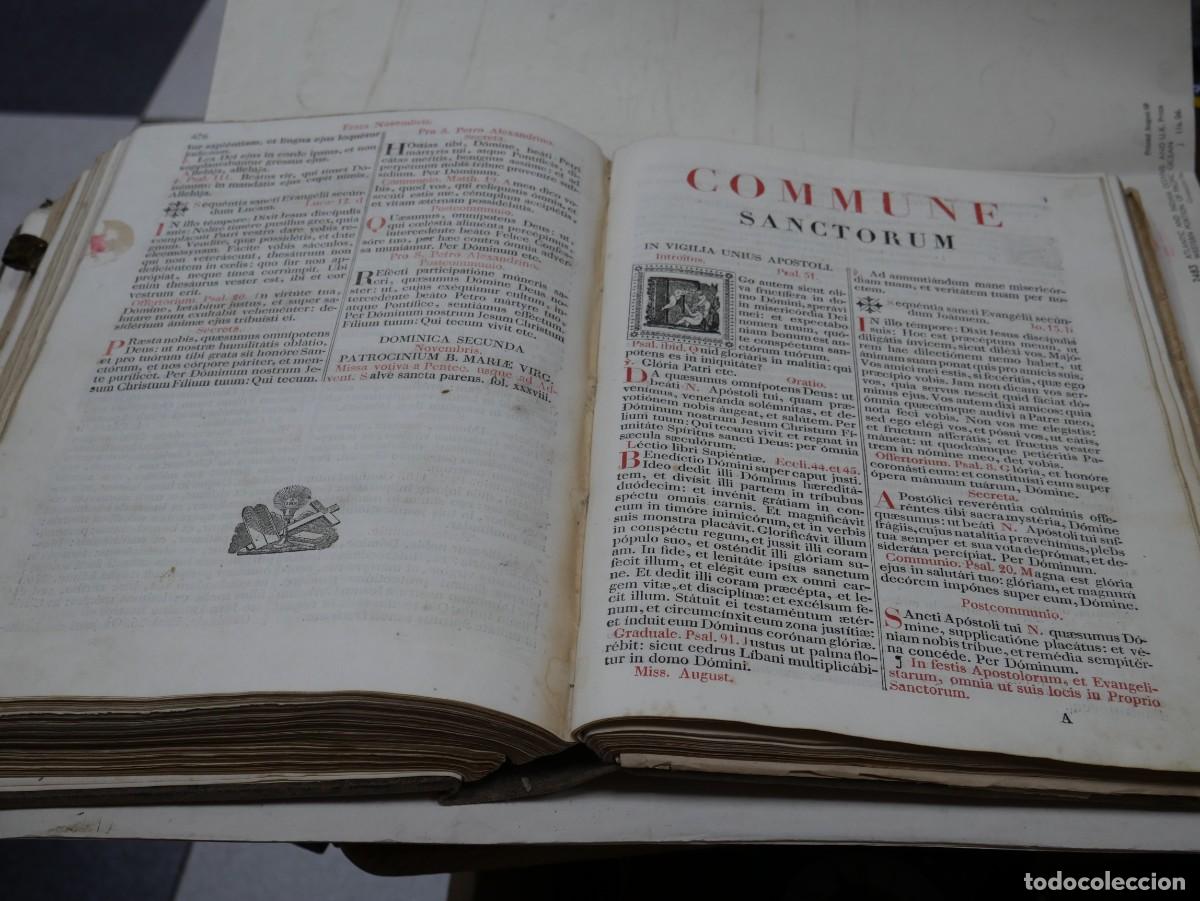 476
Festa Novembris.
tur sapiéntiam, et lingua ejus loquétur
judícium.
Lex Dei ejus in corde ipsíus, et non
supplantabúntur gressus ejus.
Allelúja, allelúja.
℣. Psal. 111. Beátus vir, qui timet Dó-
minum: in mandátis ejus cupit nimis.
Allelúja.
Sequéntia sancti Evangélii secún-
dum Lucam. Lucæ 12. d
IN illo témpore: Dixit Jesus discípulis
suis: Nolíte timére pusíllus grex, quia
complácuit Patri vestro dare vobis re-
gnum. Véndite, quæ possidétis, et date
eleemósynam. Fácite vobis sácculos,
qui non veteráscunt, thesáurum non
deficiéntem in cœlis: quo fur non ap-
própiat, neque tínea corrúmpit. Ubi
enim thesáurus vester est, ibi et cor
vestrum erit.
Offertorium. Psal. 20. In virtúte tua,
Dómine, lætábitur justus, et super sa-
lutáre tuum exultábit veheménter: de-
sidérium ánimæ ejus tribuísti ei.
Secreta.
PRæsta nobis, quæsumus omnípotens
Deus: ut nostræ humilitátis oblátio,
et pro tuórum tibi grata sit honóre San-
ctórum, et nos córpore páriter, et men-
te puríficet. Per Dóminum nostrum Je-
sum Christum Fílium tuum: Qui tecum.
Pro S. Petro Alexandrino.
Secreta.
HOstias tibi, Dómine, beáti Petri
mártyris tui, atque Pontíficis, di-
cátas méritis, benígnus assúme: et ad
perpétuum nobis tríbue proveníre subsí-
dium. Per Dóminum.
Communio. Matth. 19. Amen dico vo-
bis, quod vos, qui reliquístis ómnia, et
secúti estis me, céntuplum accipiétis,
et vitam ætérnam possidébitis.
Postcommunio.
QUæsumus, omnípotens Deus: ut,
qui cœléstia aliménta percépimus,
intercedénte beáto Felíce Confes-
sóre tuo, per hæc contra ómnia advér-
sa muniámur. Per Dóminum.
Pro S. Petro Alexandrino.
Postcommunio.
REfécti participatióne múneris sa-
cri, quæsumus Dómine Deus no-
ster: ut, cujus exéquimur cultum, in-
tercedénte beáto Petro mártyre tuo
atque Pontífice, sentiámus efféctum.
Per Dóminum nostrum Jesum Christum
Fílium tuum: Qui tecum vivit etc.
DOMINICA SECUNDA
Novembris.
PATROCINIUM B. MARIÆ VIRG.
Missa votiva a Pentec. usque ad Ad-
vent. Salve sancta parens. fol. xxxviii.
1
COMMUNE
SANCTORUM
IN VIGILIA UNIUS APOSTOLI
Introitus. Psal. 51.
Go autem sicut oli-
va fructífera in do-
mo Dómini, sperávi
in misericórdia Dei
mei: et expectábo
nomen tuum, quó-
niam bonum est an-
te conspéctum san-
ctórum tuórum.
Psal. ibid. Quid gloriáris in malítia: qui
potens es in iniquitáte?
℣. Glória Patri etc.
Oratio.
DA quæsumus omnípotens Deus: ut
beáti N. Apóstoli tui, quam præ-
venímus, veneránda solémnitas, et de-
votiónem nobis áugeat, et salútem. Per
Dóminum nostrum Jesum Christum Fí-
lium tuum: Qui tecum vivit et regnat in
unitáte Spíritus sancti Deus: per ómnia
sæcula sæculórum.
Léctio libri Sapiéntiæ. Eccli. 44. et 45.
BEnedíctio Dómini super caput justi.
Ideo dedit illi Dóminus hæreditá-
tem, et divísit illi partem in tríbubus
duódecim: et invénit grátiam in con-
spéctu omnis carnis. Et magnificávit
eum in timóre inimicórum, et in verbis
suis monstra placávit. Glorificávit illum
in conspéctu regum, et jussit illi coram
pópulo suo, et osténdit illi glóriam su-
am. In fide, et lenitáte ipsíus sanctum
fecit illum, et elégit eum ex omni car-
ne. Et dedit illi coram præcépta, et le-
gem vitæ, et disciplínæ: et excélsum fe-
cit illum. Státuit ei testaméntum ætér-
num, et circumcínxit eum zona justítiæ:
et índuit eum Dóminus corónam glóriæ.
Graduale. Psal. 91. Justus ut palma flo-
rébit: sicut cedrus Líbani multiplicábi-
tur in domo Dómini.
Miss. August.
℣. Ad annuntiándum mane misericór-
diam tuam, et veritátem tuam per no-
ctem.
Sequéntia sancti Evangélii secún-
dum Joánnem. Jo. 15. b
IN illo témpore: Dixit Jesus discípulis
suis: Hoc est præcéptum meum, ut
diligátis ínvicem, sicut diléxi vos. Majó-
rem hac dilectiónem nemo habet, ut á-
nimam suam ponat quis pro amícis suis.
Vos amíci mei estis, si fecéritis, quæ ego
præcípio vobis. Jam non dicam vos ser-
vos, quia servus nescit quid fáciat dó-
minus ejus. Vos autem dixi amícos: quia
ómnia quæcúmque audívi a Patre meo,
nota feci vobis. Non vos me elegístis:
sed ego elégi vos, et pósui vos, ut eátis,
et fructum afferátis; et fructus vester
máneat: ut quodcúmque petiéritis Pa-
trem in nómine meo, det vobis.
Offertorium. Psal. 8. Glória, et honóre
coronásti eum: et constituísti eum super
ópera mánuum tuárum, Dómine.
Secreta.
APostólici reveréntia cúlminis offe-
réntes tibi sacra mystéria, Dómine
quæsumus: ut beáti N. Apóstoli tui suf-
frágiis, cujus natalítia prævenímus, plebs
tua semper et sua vota deprómat, et de-
sideráta percípiat. Per Dóminum.
Communio. Psal. 20. Magna est glória
ejus in salutári tuo: glóriam, et magnum
decórem impónes super eum, Dómine.
Postcommunio.
SAncti Apóstoli tui N. quæsumus Dó-
mine, supplicatióne placátus: et vé-
niam nobis tríbue, et remédia sempitér-
na concéde. Per Dóminum.
¶ In festis Apostolorum, et Evangeli-
starum, omnia ut suis locis in Proprio
Sanctorum.
A
todocoleccion